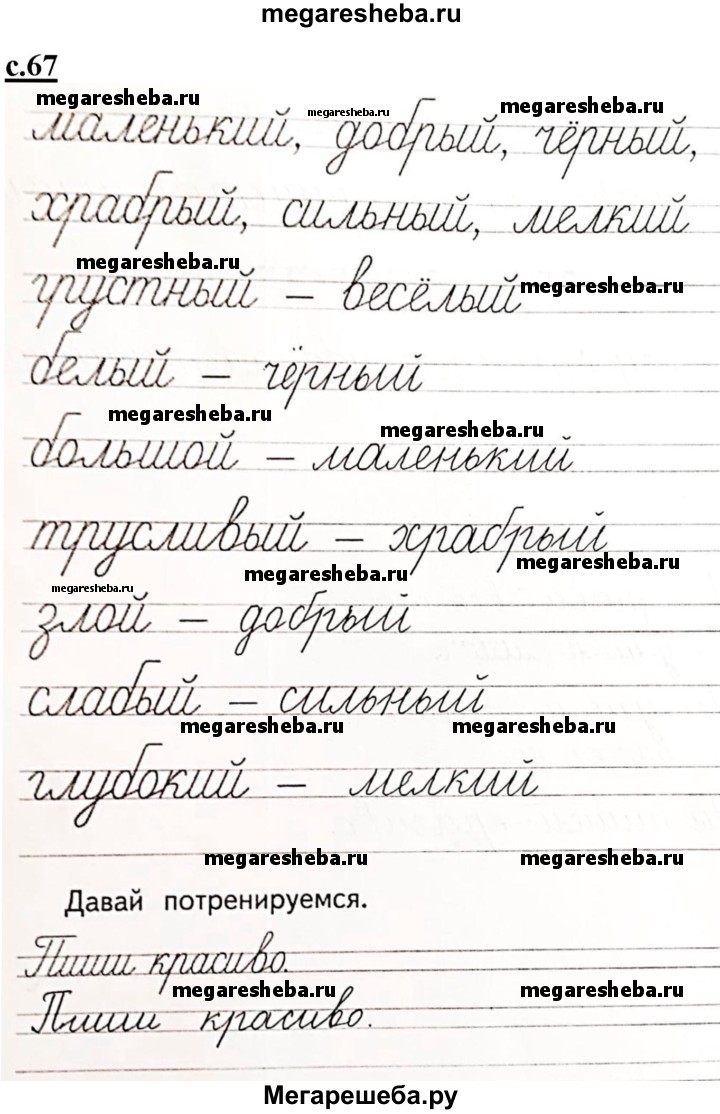 megaresheba.ru
с.67
megaresheba.ru megaresheba.ru megaresheba.ru
маленький, добрый, чёрный,
храбрый, сильный, мелкий
megaresheba.ru megaresheba.ru
грустный – весёлый
белый – чёрный
megaresheba.ru megaresheba.ru
большой – маленький
трусливый – храбрый
megaresheba.ru megaresheba.ru megaresheba.ru
злой – добрый
слабый – сильный
megaresheba.ru megaresheba.ru
глубокий – мелкий
megaresheba.ru megaresheba.ru
Давай потренируемся.
Пиши красиво.
megaresheba.ru megaresheba.ru
Пиши красиво.
Мегарешеба.ру